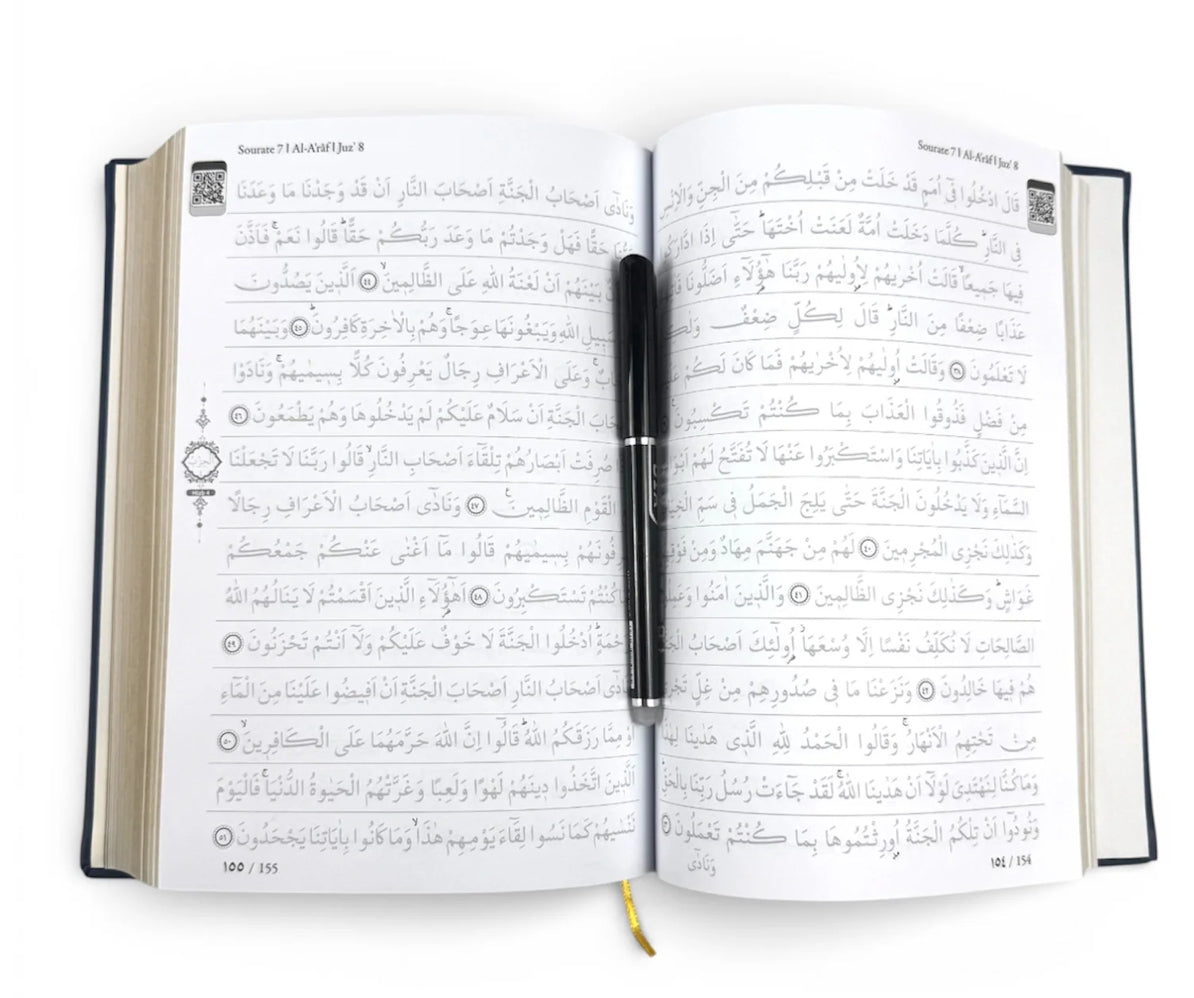 Sourate 7 | Al-A'râf | Juz' 8
قَالَ ادْخُلُوا فٖٓي اُمَمٍ قَدْ خَلَتْ مِنْ قَبْلِكُمْ مِنَ الْجِنِّ وَالْاِنْسِ
فِي النَّارِؕ كُلَّمَا دَخَلَتْ اُمَّةٌ لَعَنَتْ اُخْتَهَاؕ حَتّٰٓى اِذَا ادَّارَكُوا
فٖيهَا جَمٖيعًاۙ قَالَتْ اُخْرٰيهُمْ لِاُو۫لٰيهُمْ رَبَّنَا هٰٓؤُ۬لَٓاءِ اَضَلُّونَا
عَذَابًا ضِعْفًا مِنَ النَّارِؕ قَالَ لِكُلٍّ ضِعْفٌ
لَا تَعْلَمُونَ ﴿٣٨﴾ وَقَالَتْ اُو۫لٰيهُمْ لِاُخْرٰيهُمْ فَمَا كَانَ لَكُمْ
مِنْ فَضْلٍ فَذُوقُوا الْعَذَابَ بِمَا كُنْتُمْ تَكْسِبُونَ
اِنَّ الَّذٖينَ كَذَّبُوا بِاٰيَاتِنَا وَاسْتَكْبَرُوا عَنْهَا لَا تُفَتَّحُ لَهُمْ
السَّمَٓاءِ وَلَا يَدْخُلُونَ الْجَنَّةَ حَتّٰى يَلِجَ الْجَمَلُ فٖي سَمِّ
وَكَذٰلِكَ نَجْزِي الْمُجْرِمٖينَ ﴿٤٠﴾ لَهُمْ مِنْ جَهَنَّمَ مِهَادٌ وَمِنْ
غَوَاشٍؕ وَكَذٰلِكَ نَجْزِي الظَّالِمٖينَ ﴿٤١﴾ وَالَّذٖينَ اٰمَنُوا
الصَّالِحَاتِ لَا نُكَلِّفُ نَفْسًا اِلَّا وُسْعَهَاۘ اُو۬لٰٓئِكَ اَصْحَابُ
هُمْ فٖيهَا خَالِدُونَ ﴿٤٢﴾ وَنَزَعْنَا مَا فٖي صُدُورِهِمْ مِنْ غِلٍّ
مِنْ تَحْتِهِمُ الْاَنْهَارُۚ وَقَالُوا الْحَمْدُ لِلّٰهِ الَّذٖي هَدٰينَا لِهٰذَا
وَمَا كُنَّا لِنَهْتَدِيَ لَوْلَٓا اَنْ هَدٰينَا اللّٰهُۚ لَقَدْ جَٓاءَتْ رُسُلُ رَبِّنَا بِالْحَقِّؕ
وَنُودُٓوا اَنْ تِلْكُمُ الْجَنَّةُ اُو۫رِثْتُمُوهَا بِمَا كُنْتُمْ تَعْمَلُونَ
وَنَادٰٓى
١٥٤ / 154
Sourate 7 | Al-A'râf | Juz' 8
وَنَادٰٓى اَصْحَابُ الْجَنَّةِ اَصْحَابَ النَّارِ اَنْ قَدْ وَجَدْنَا مَا وَعَدَنَا
رَبُّنَا حَقًّا فَهَلْ وَجَدْتُمْ مَا وَعَدَ رَبُّكُمْ حَقًّاؕ قَالُوا نَعَمْۚ فَاَذَّنَ
بَيْنَهُمْ اَنْ لَعْنَةُ اللّٰهِ عَلَى الظَّالِمٖينَۙ ﴿٤٤﴾ اَلَّذٖينَ يَصُدُّونَ
سَبٖيلِ اللّٰهِ وَيَبْغُونَهَا عِوَجًاۚ وَهُمْ بِالْاٰخِرَةِ كَافِرُونَؕ ﴿٤٥﴾ وَبَيْنَهُمَا
وَعَلَى الْاَعْرَافِ رِجَالٌ يَعْرِفُونَ كُلًّا بِسٖيمٰيهُمْۚ وَنَادَوْا
الْجَنَّةِ اَنْ سَلَامٌ عَلَيْكُمْ لَمْ يَدْخُلُوهَا وَهُمْ يَطْمَعُونَ ﴿٤٦﴾
صُرِفَتْ اَبْصَارُهُمْ تِلْقَٓاءَ اَصْحَابِ النَّارِۙ قَالُوا رَبَّنَا لَا تَجْعَلْنَا
الْقَوْمِ الظَّالِمٖينَۚ ﴿٤٧﴾ وَنَادٰٓى اَصْحَابُ الْاَعْرَافِ رِجَالًا
بِسٖيمٰيهُمْ قَالُوا مَٓا اَغْنٰى عَنْكُمْ جَمْعُكُمْ
كُنْتُمْ تَسْتَكْبِرُونَ ﴿٤٨﴾ اَهٰٓؤُ۬لَٓاءِ الَّذٖينَ اَقْسَمْتُمْ لَا يَنَالُهُمُ اللّٰهُ
اُدْخُلُوا الْجَنَّةَ لَا خَوْفٌ عَلَيْكُمْ وَلَٓا اَنْتُمْ تَحْزَنُونَ ﴿٤٩﴾
اَصْحَابُ النَّارِ اَصْحَابَ الْجَنَّةِ اَنْ اَفٖيضُوا عَلَيْنَا مِنَ الْمَٓاءِ
اَوْ مِمَّا رَزَقَكُمُ اللّٰهُؕ قَالُٓوا اِنَّ اللّٰهَ حَرَّمَهُمَا عَلَى الْكَافِرٖينَۙ ﴿٥٠﴾
اَلَّذٖينَ اتَّخَذُوا دٖينَهُمْ لَهْوًا وَلَعِبًا وَغَرَّتْهُمُ الْحَيٰوةُ الدُّنْيَاۚ فَالْيَوْمَ
نَنْسٰيهُمْ كَمَا نَسُوا لِقَٓاءَ يَوْمِهِمْ هٰذَاۙ وَمَا كَانُوا بِاٰيَاتِنَا يَجْحَدُونَ ﴿٥١﴾
Hizb 4
١٥٥ / 155